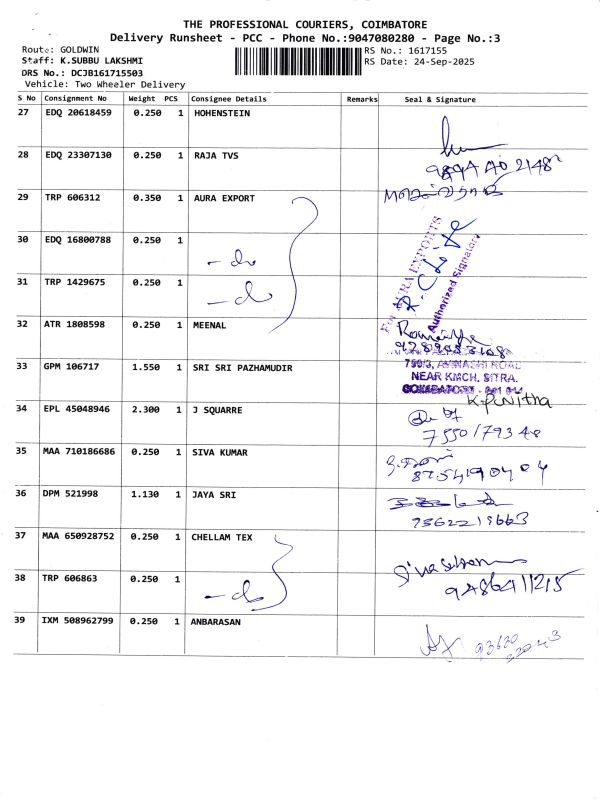 THE PROFESSIONAL COURIERS, COIMBATORE
Delivery Runsheet - PCC - Phone No.:9047080280 - Page No.:3
Route: GOLDWIN
RS No.: 1617155
Staff: K.SUBBU LAKSHMI
RS Date: 24-Sep-2025
DRS No.: DCJB161715503
Vehicle: Two Wheeler Delivery
S No Consignment No Weight PCS Consignee Details Remarks Seal & Signature
27 EDQ 20618459 0.250 1 HOHENSTEIN
28 EDQ 23307130 0.250 1 RAJA TVS
29 TRP 606312 0.350 1 AURA EXPORT
For AURA EXPORTS
Authorized Signatory
30 EDQ 16800788 0.250 1 - do
31 TRP 1429675 0.250 1 - do
32 ATR 1808598 0.250 1 MEENAL
33 GPM 106717 1.550 1 SRI SRI PAZHAMUDIR
AVINASHI ROAD
NEAR KMCH, SITRA.
34 EPL 45048946 2.300 1 J SQUARRE
35 MAA 710186686 0.250 1 SIVA KUMAR
36 DPM 521998 1.130 1 JAYA SRI
37 MAA 650928752 0.250 1 CHELLAM TEX
38 TRP 606863 0.250 1 - do
39 IXM 508962799 0.250 1 ANBARASAN